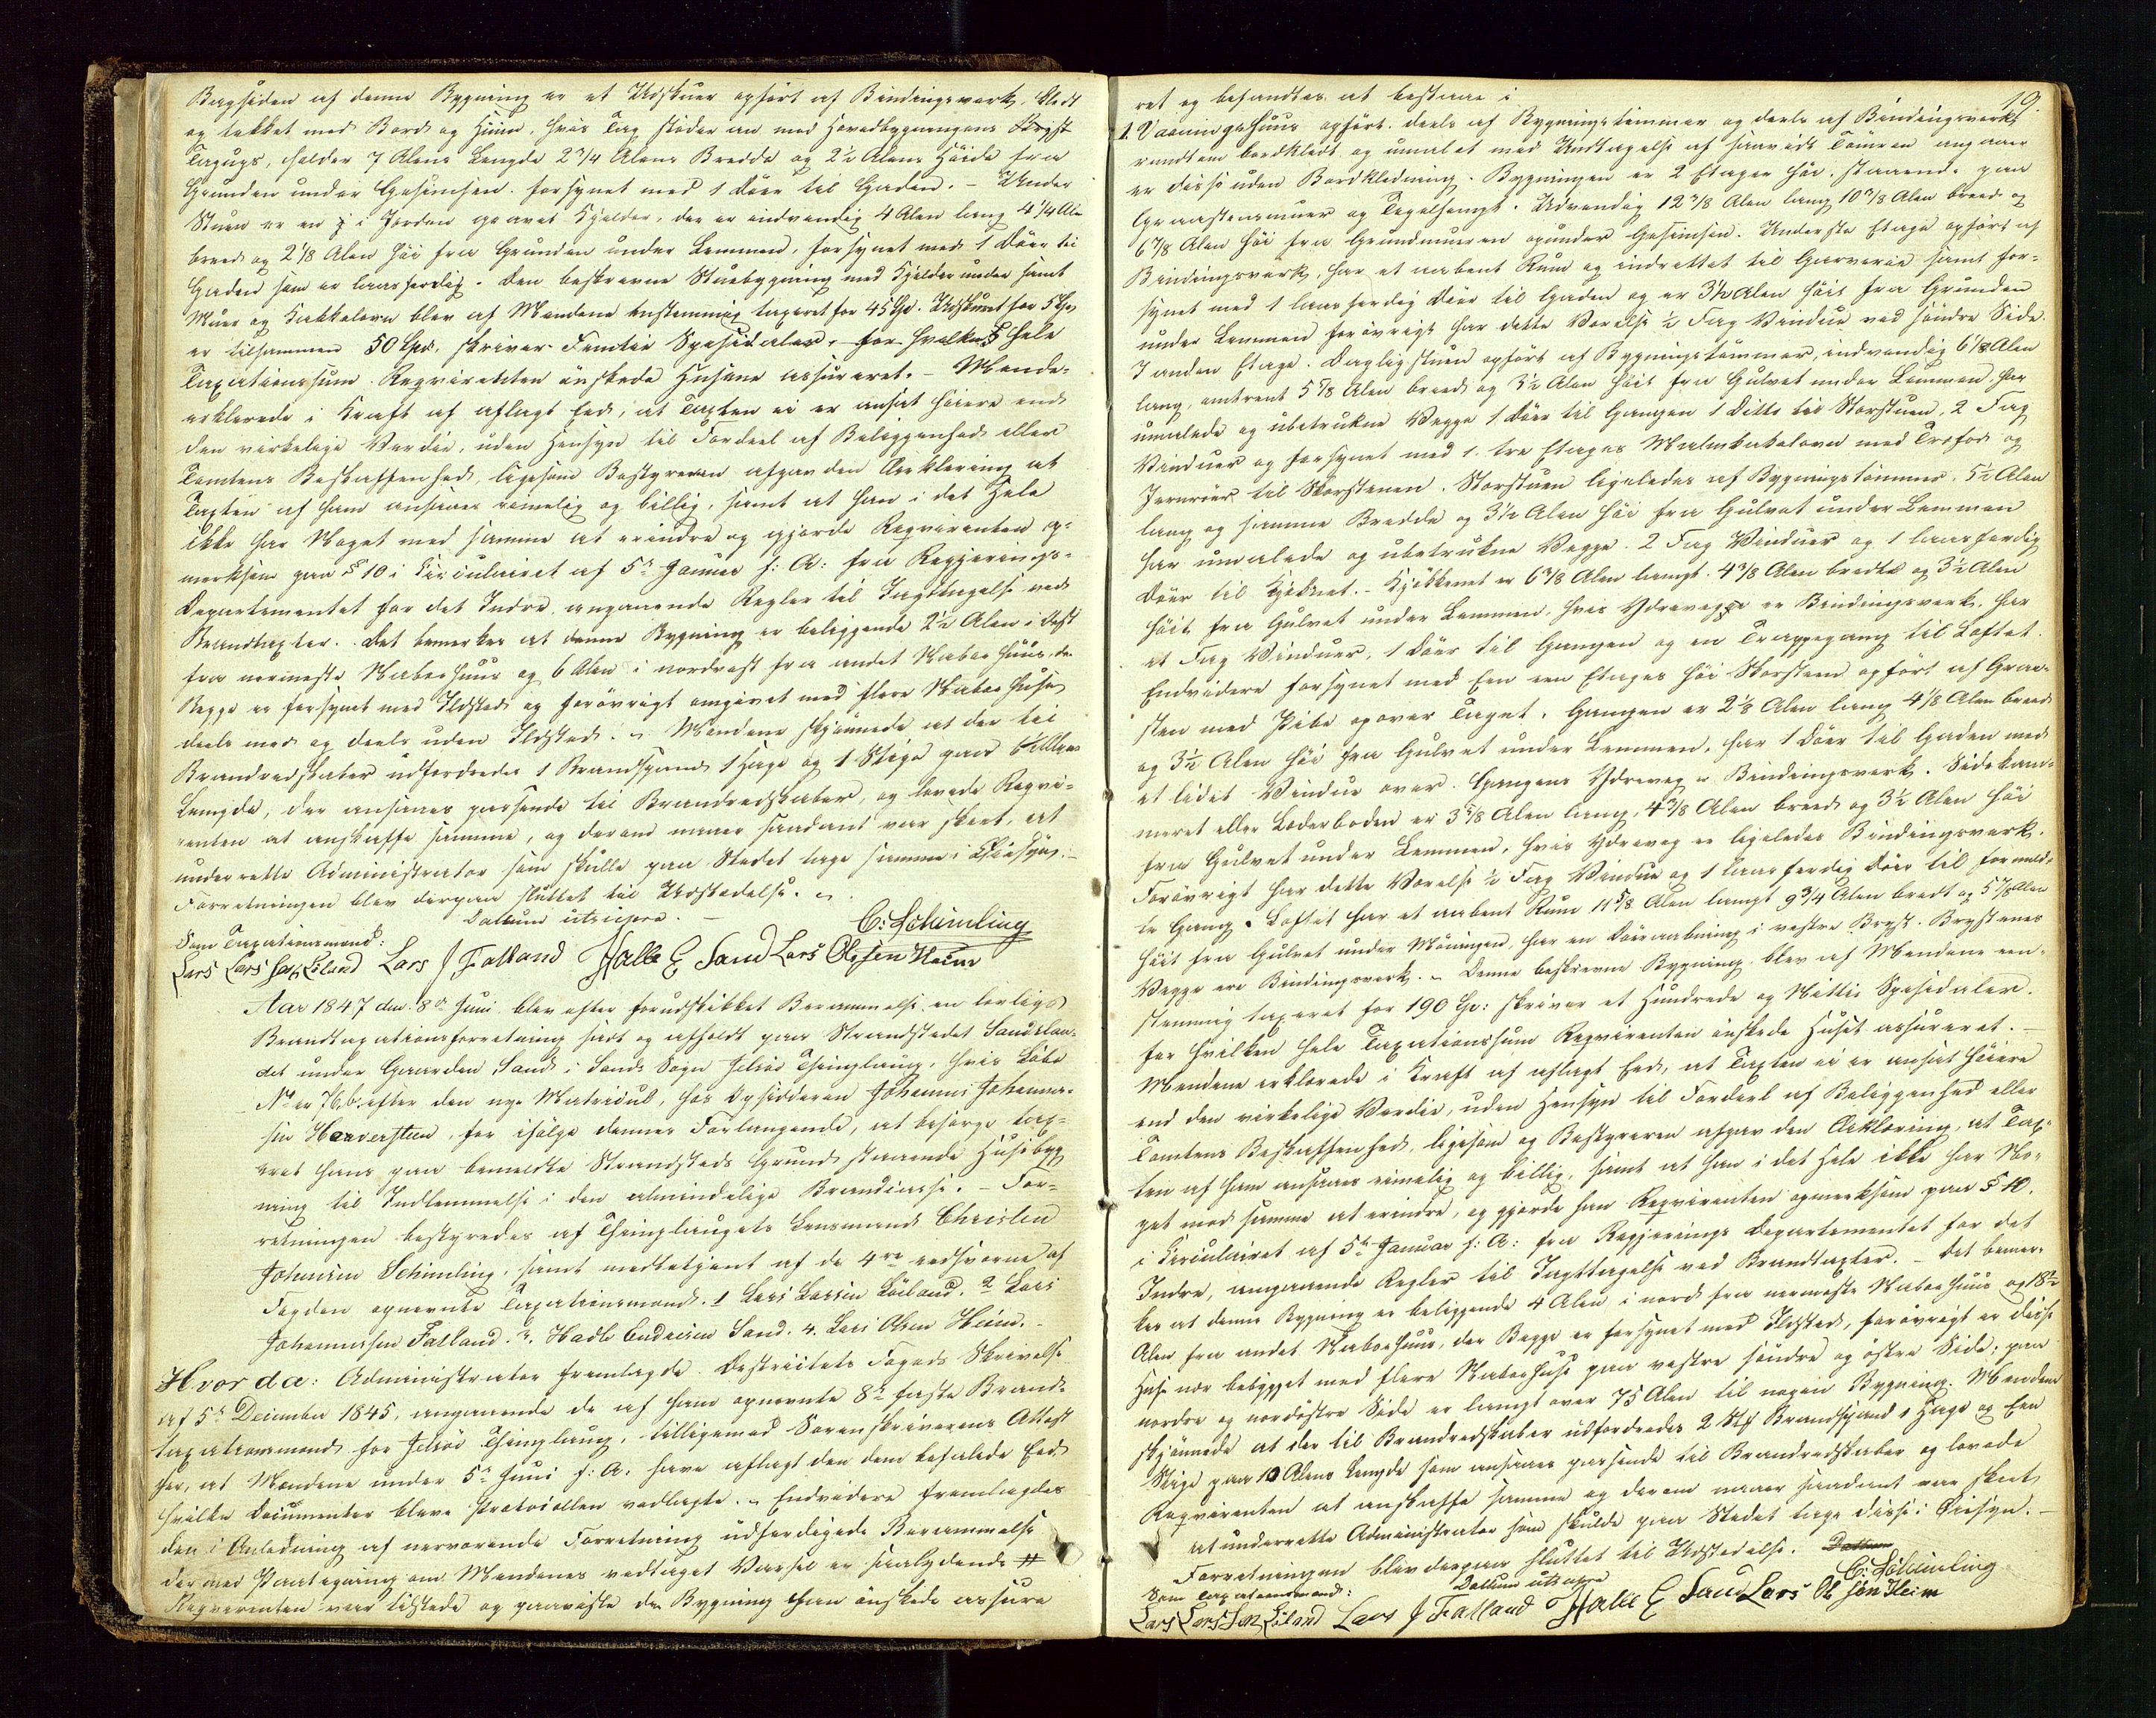 Bagsiden af denne Bygning er et Udskuur opført af Bindingsverk, klædt
og tækket med Bord og Hiim, hvis Tag støder an mod Hovedbygningens
Tagugs, holder 7 Alens Længde 2 3/4 Alens Bredde og 2 1/2 Alens Høide fra
Grunden under Gesimsen, forsynet med 1 Dør til Gaden. - Under
Stuen er en i Jorden gravet Kjelder, der er indvendig 4 Alen lang 4 1/4 Ale
breed og 2 1/8 Alen høi fra Grunden under Lemmen, forsynet med 1 Døer til
Gaden som er laasferdig. Den beskrevne Stuebygning med Kjelder under samt
Muur og Kakkelovn blev af Mændene eenstemmig taxeret for 45 Spd. Udskuret for 5 Spd
er tilsammen 50 Spd, skriver Femtie Spesidaler, for hvilken hele
Taxationssum Reqvirenten ønskede Husene assureret. - Mænde-
erklærede i Kraft af aflagt Eed, at Taxten ei er ansat høiere end
den virkelige Værdie, uden Hensyn til Fordeel af Beliggenhed eller
Tomtens Beskaffenhed, ligesom Bestyreren afgav den Erklæring at
Taxten af ham ansees rimelig og billig, samt at han i det Hele
ikke har Noget med samme at erindre og gjorde Reqvirenten op-
merksom paa § 10 i Circulairet af 5te Januar f: A: fra Regjerings-
Departementet for det Indre, angaaende Regler til Iagttagelse ved
Brandtaxter. Det bemerkes at denne Bygning er beliggende 2 1/2 Alen i Vest
fra nærmeste Naboehuus og 6 Alen i nordvest fra andet Naboehuus, der
Begge er forsynet med Ildsted og forøvrigt omgivet med flere Naboehuse
deels med og deels uden Ildsted. - Mændene skjønnede at der til
Brandredskaber udfordredes 1 Brandspand 1 Hage og 1 Stige paa 6 Alens
Længde, der ansees passende til Brandredskaber, og lovede Reqvi-
renten at anskaffe samme, og derom naar saadant var skeet, at
underrette Administrator som skulle paa Stedet tage samme i Øiesyn. -
Forretningen blev derpaa sluttet til Udstedelse. -
Datum utsupra. -
C: Schimling
Som Taxationsmænd:
Lars Larssen Eiland Lars J Fatland Halle E Sand Lars Olsen Heim
Aar 1847 den 8de Juni blev efter forudskikket Berammelse en lovlig
Brandtaxationsforretning sadt og afholdt paa Strandstedet Sandslan-
det under Gaarden Sand i Sands Sogn Jelsøe Thinglaug, hvis Løbe
No er 76,b. efter den nye Matricul, hos Opsidderen Johannes Johanne-
sen Herverstun, for ifølge dennes Forlangende, at besørge tax-
eret hans paa bemeldte Strandsteds Grund staaende Husebyg
ning til Indlemmelse i den almindelige Brandcasse. - For-
retningen bestyredes af Thinglaugets Lensmand Christen
Johnsen Schimling, samt medbetjent af de 4re eedsvorne af
Fogden opnevnte Taxationsmænd. 1 Lars Larsen Eiland. 2 Lars
Johannessen Fatland. 3. Hadle Endresen Sand. 4. Lars Olsen Heim. -
Hvor da: Administrator fremlagde Destrictets Fogeds Skrivelse
af 5te Decimber 1845, angaaende de af ham opnevnte 8te faste Brand-
taxationsmænd for Jelsøe Thinglaug, tilligemed Sorenskriverens Attest
for, at Mændene under 5te Juni f: A: have aflagt den dem befalede Eed
hvilke Documenter bleve Protocollen vedlagte. - Endvidere fremlagdes
den i Anledning af nærværende Forretning udferdigede Berammelse
der med Paategning om Mændenes vedtaget Varsel er saalydende #
Reqvirenten var tilstede og paaviste den Bygning han ønskede assure
19.
ret og befandtes at bestaae i
1. Vaaningshuus opført deels af Bygningstimmer og deels af Bindingsverk
rundtom bordklædt og umalet med Undtagelse af saavidt Tømren angaaer
er disse uden Bordklædning. Bygningen er 2 Etager høi, staaende paa
Graastensmuur og Tegelhengt. Udvendig 12 3/8 Alen lang 10 3/8 Alen breed og
6 7/8 Alen høi fra Grundmuuren opunder Gesimsen. Underste Etage opført af
Bindingsverk, har et aabent Rum og indrettet til Garverie samt for-
synet med 1 laasferdig Dør til Gaden og er 3 1/2 Alen høit fra Grunden
under Lemmen forøvrigt har dette Værelse 1/2 Fag Vindue ved søndre Side.
I anden Etage. Dagligstuen opført af Bygningstømmer, indvendig 6 1/8 Alen
lang, omtrent 5 7/8 Alen breed og 3 1/2 Alen høit fra Gulvet under Lemmen, har
umalede og ubetrukne Vegge 1 Døer til Gangen 1 Ditto til Storstuen, 2 Fag
Vinduer og forsynet med 1. tre Etages Malmkakelovn med Træfod og
Jernrør til Skorstenen. Storstuen ligeledes af Bygningstømmer, 5 1/2 Alen
lang og samme Bredde og 3 1/2 Alen høi fra Gulvet under Lemmen
har umalede og ubetrukne Vegge. 2 Fag Vinduer og 1 laasferdig
Døer til Kjøknet. - Kjøkkenet er 6 3/8 Alen langt. 4 3/8 Alen bredt og 3 1/2 Alen
høit fra Gulvet under Lemmen, hvis Ydrevegge er Bindingsverk, har
et Fag Vinduer, 1 Døer til Gangen og en Trappegang til Loftet.
Endvidere forsynet med Een een Etages høi Skorsteen opført af Graa-
steen med Pibe opover Taget. Gangen er 2 1/8 Alen lang 4 1/8 Alen breed
og 3 1/2 Alen høi fra Gulvet under Lemmen, har 1 Døer til Gaden med
et lidet Vindue over. Gangens Ydreveg er Bindingsverk. Sidekam-
meret eller Læderboden er 3 5/8 Alen lang, 4 3/8 Alen breed og 3 1/2 Alen høi
fra Gulvet under Lemmen, hvis Ydreveg er ligeledes Bindingsverk.
Forøvrigt har dette Værelse 1/2 Fag Vindue og 1 laasferdig Døer til formeld-
te Gang. Loftet har et aabent Rum 11 5/8 Alen langt 9 3/4 Alen bredt og 5 7/8 Alen
høit fra Gulvet under Møningen, har en Døeraabning i vestre Bryst. Brystenes
Vegge ere Bindingsverk. - Denne beskrevne Bygning blev af Mændene een-
stemmig taxeret for 190 Sp: skriver et Hundrede og Nittie Spesidaler.
for hvilken hele Taxationssum Reqvirenten ønskede Huset assureret. -
Mændene erklærede i Kraft af aflagt Eed, at Taxten ei er ansat høiere
end den virkelige Værdie, uden Hensyn til Fordeel af Beliggenhed eller
Tomtens Beskaffenhed, ligesom og Bestyreren afgav den Erklæring, at Tax-
ten af ham ansees rimelig og billig, samt at han i det Hele ikke har No-
get med samme at erindre, og gjorde han Reqvirenten opmerksom paa § 10.
i Circulairet af 5te Januar f: A: fra Regjerings Departementet for det
Indre, angaaende Regler til Iagttagelse ved Brandtaxter. - Det bemer-
kes at denne Bygning er beliggende 4 Alen i nord fra nærmeste Naboehuus og 18 1/2
Alen fra andet Naboehuus, der Begge er forsynet med Ildsted, forøvrigt er disse
Huse nær bebygget med flere Naboehuse paa vestre søndre og østre Side; paa
nordre og nordøstre Side er langt over 75 Alen til nogen Bygning. Mændene
skjønnede at der til Brandredskaber udfordredes 2 Stk Brandspand 1 Hage og Een
Stige paa 10 Alens Længde som ansees passende til Brandredskaber og lovede
Reqvirenten at anskaffe samme og derom naar saadant var skeet
at underrette Administrator som skulde paa Stedet tage disse i Øiesyn. -
Forretningen blev derpaa sluttet til Udstedelse. Dattum
Dattum utsupra
C: Schimling
Som Taxationsmænd:
Lars Larssen Eiland Lars J Fatland Halle E Sand Lars Olsøn Heim